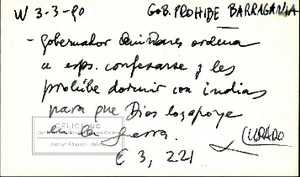 W 3-3-90 GOB. PROHIBE BARRAGANIA
- gobernador Quiñones ordena
a esps. confesarse y les
prohibe dormir con indias
para que Dios los apoye
en la guerra.
(LIDADO)
C 3, 221